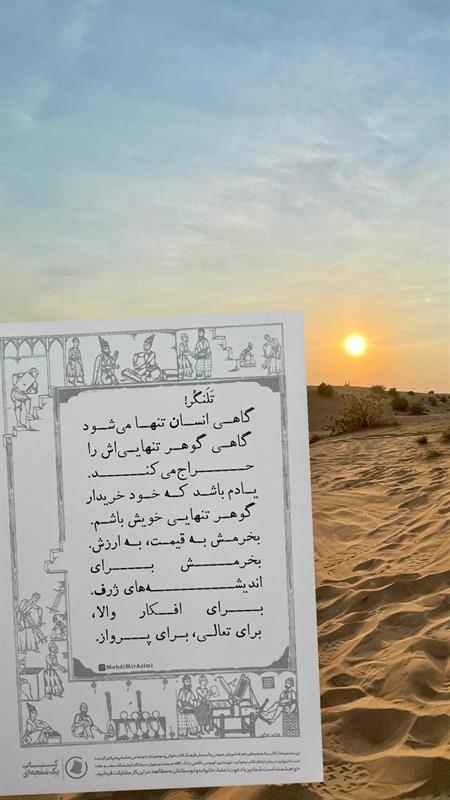 تَلَنگُر!
گاهی انسان تنها می‌شود
گاهی گوهر تنهایی‌اش را
حراج می‌کند.
یادم باشد که خود خریدار
گوهر تنهایی خویش باشم.
بخرمش به قیمت، به ارزش.
بخرمش برای
اندیشه‌های ژرف.
برای افکار والا،
برای تعالی، برای پرواز.
MehdiMirAzimi
کتاب
یک صفحه‌ای